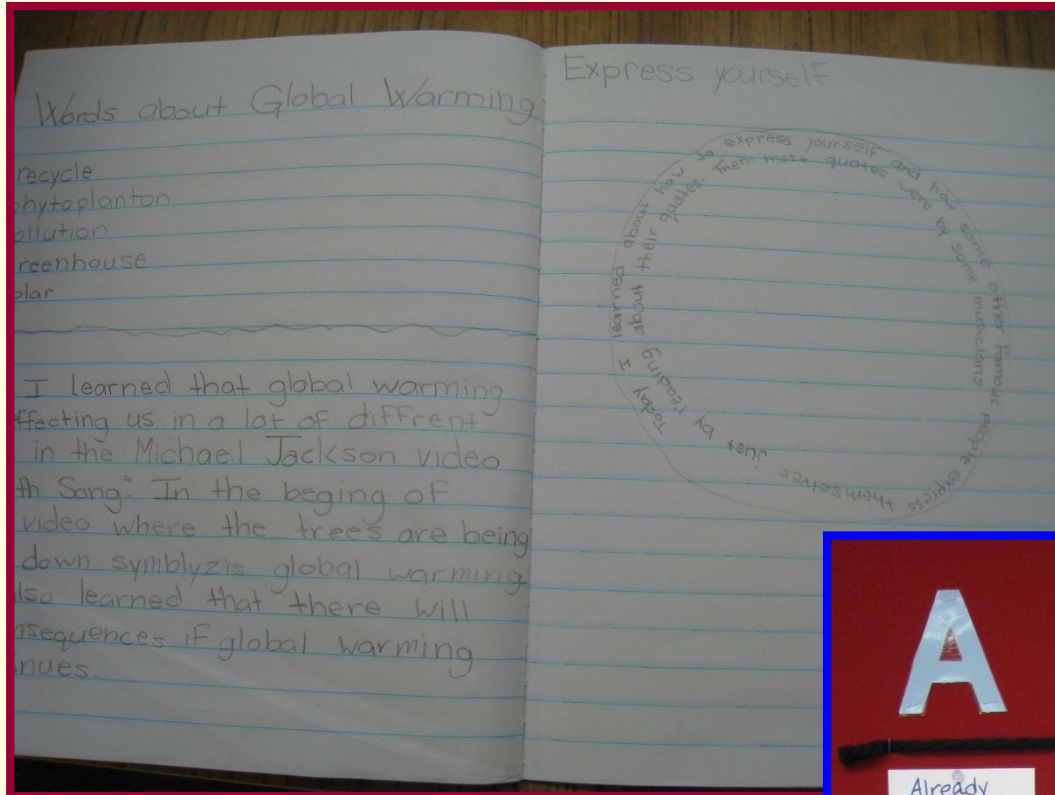 Words about Global Warming
recycle
phytoplanton
ollution
reenhouse
olar
I learned that global warming
ffecting us in a lot of diffrent
in the Michael Jackson video
th Song." In the beging of
video where the trees are being
down symblyzis global warming
lso learned that there will
nsequences if global warming
inues.
Express yourself
Today I learned about how to express yourself and how some other famous people express themselves just by reading about their quates. Them most quates were by some musicians
A
Already